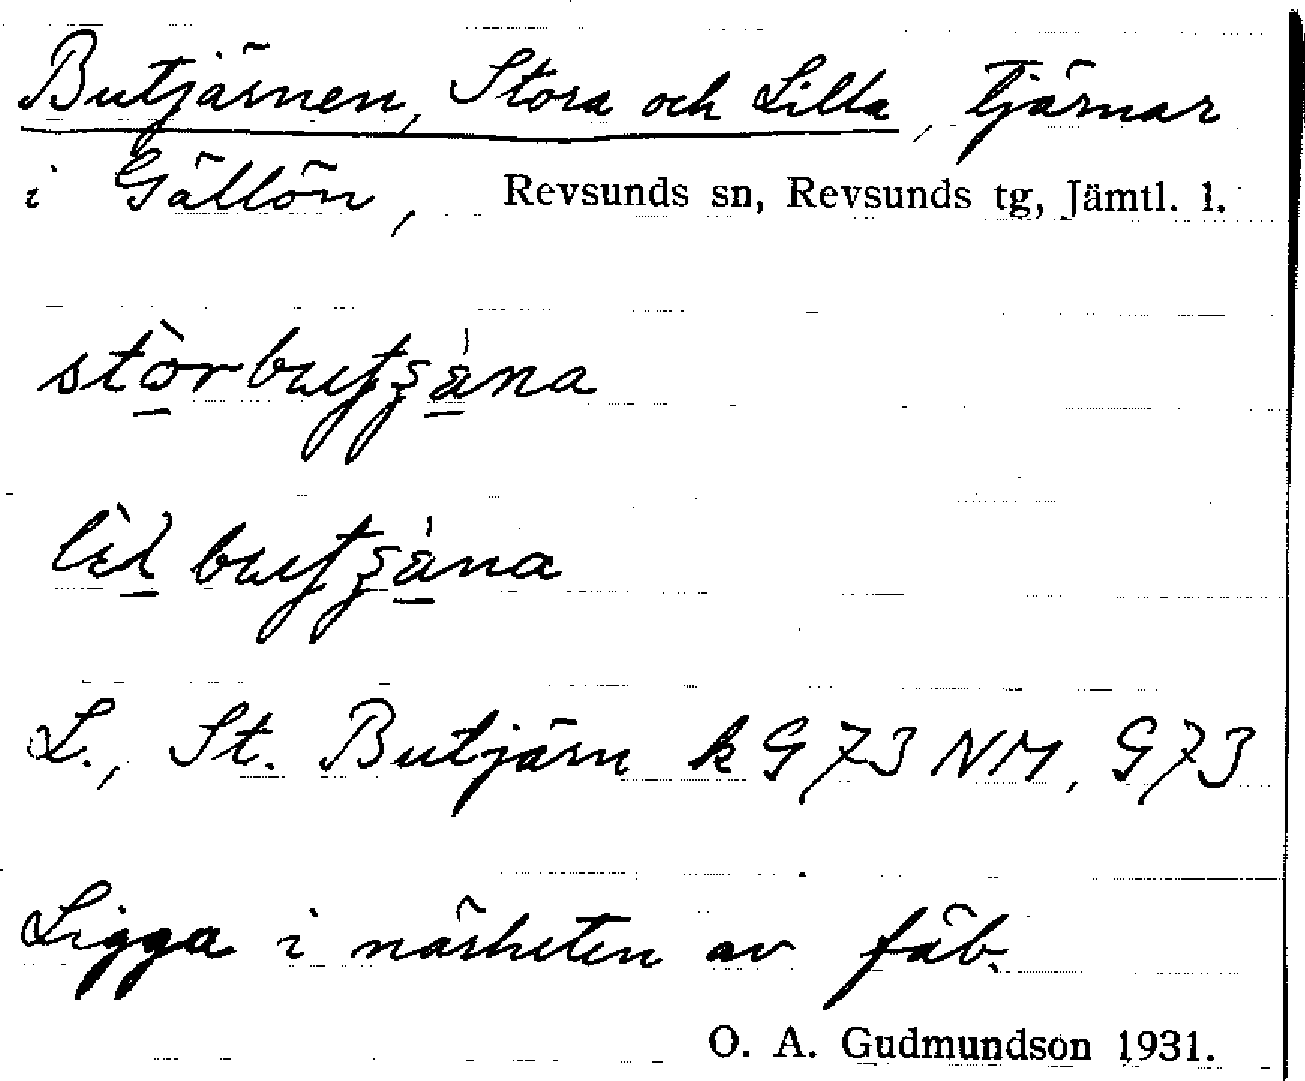 Butjärnen, Stora och Lilla, tjärnar
i Gällön, Revsunds sn, Revsunds tg, Jämtl. l.
L., St. Butjärn k G 73 NM, G 73
Ligga i närheten av fäb.
O. A. Gudmundson 1931.